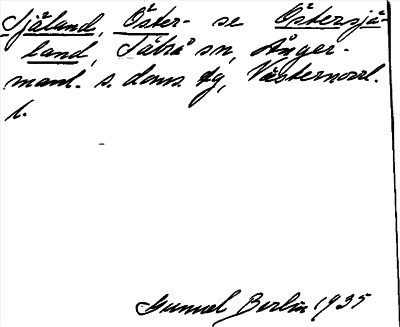 Själand, Öster- se Östersjä-
land, Tåsjö sn, Ånger-
manl. s. doms. dg, Västernorrl.
l.
Gunnel Berlin 1935